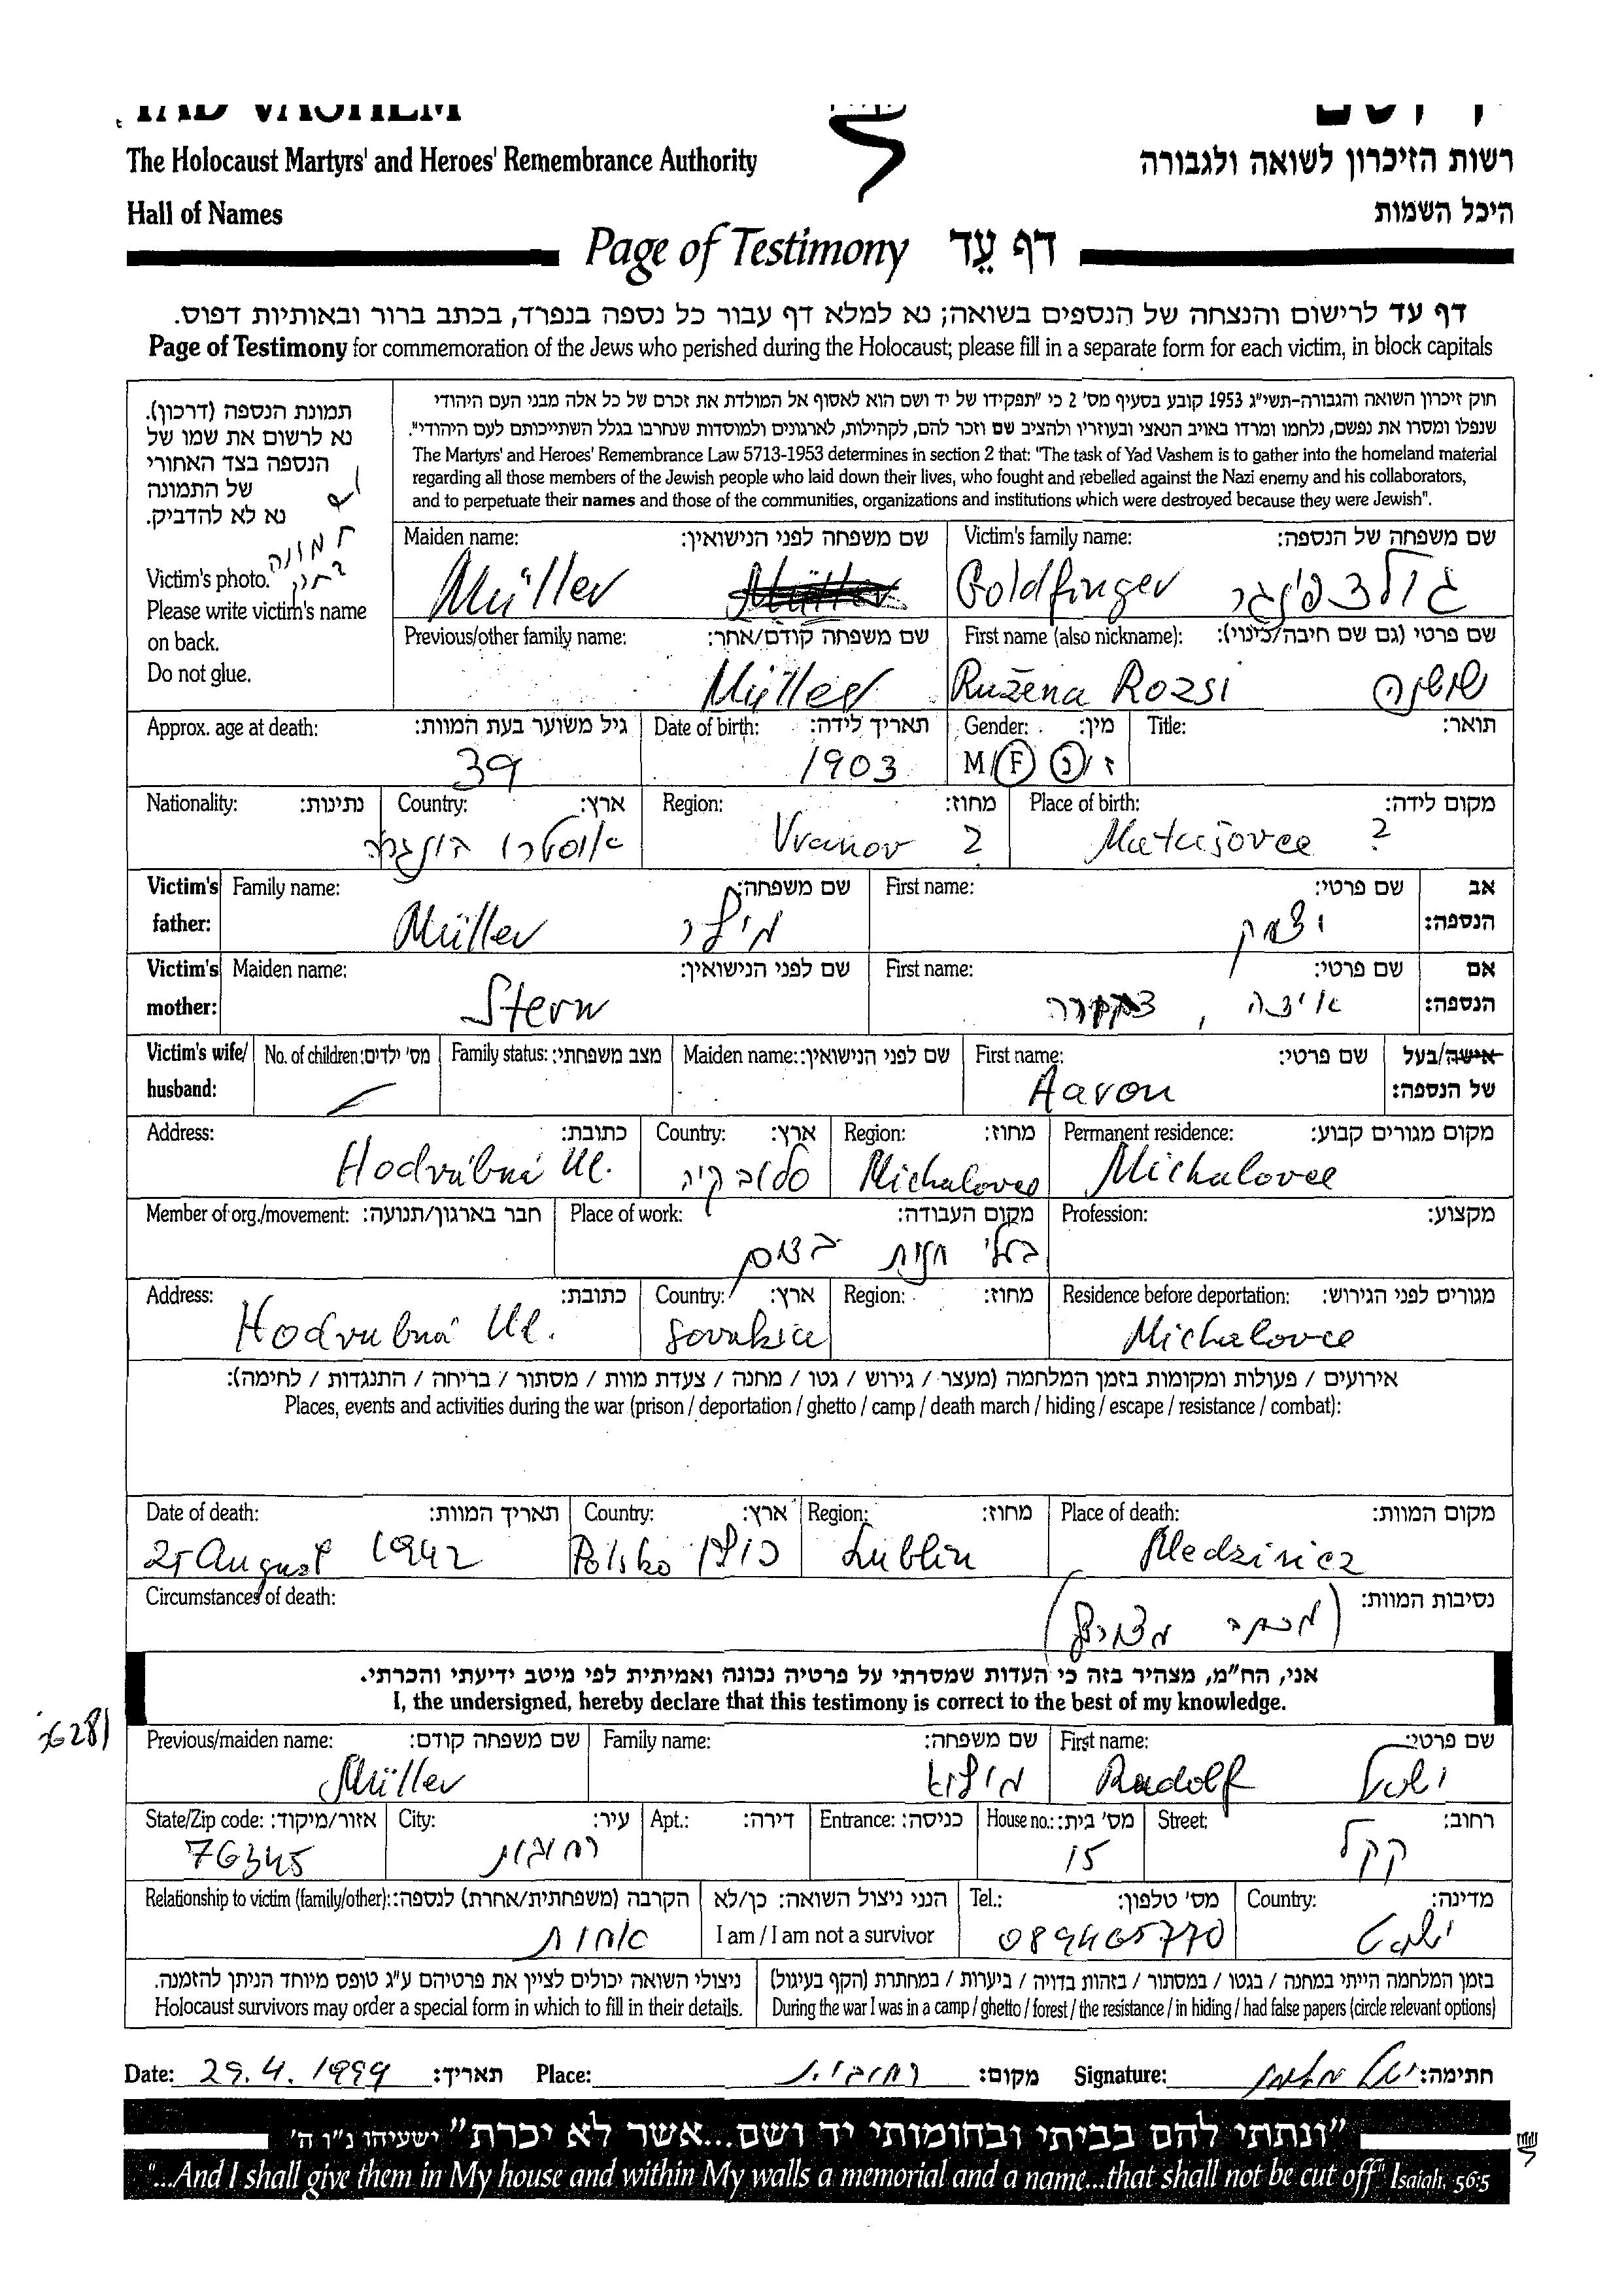 YAD VASHEM יד ושם
The Holocaust Martyrs' and Heroes' Remembrance Authority רשות הזיכרון לשואה ולגבורה
Hall of Names היכל השמות
Page of Testimony דף עֵד
דף עד לרישום והנצחה של הנספים בשואה; נא למלא דף עבור כל נספה בנפרד, בכתב ברור ובאותיות דפוס.
Page of Testimony for commemoration of the Jews who perished during the Holocaust; please fill in a separate form for each victim, in block capitals
תמונת הנספה (דרכון).
נא לרשום את שמו של
הנספה בצד האחורי
של התמונה
נא לא להדביק.
Victim's photo.
Please write victim's name
on back.
Do not glue.
חוק זיכרון השואה והגבורה-תשי"ג 1953 קובע בסעיף מס' 2 כי "תפקידו של יד ושם הוא לאסוף אל המולדת את זכרם של כל אלה מבני העם היהודי
שנפלו ומסרו את נפשם, נלחמו ומרדו באויב הנאצי ובעוזריו ולהציב שם וזכר להם, לקהילות, לארגונים ולמוסדות שנחרבו בגלל השתייכותם לעם היהודי".
The Martyrs' and Heroes' Remembrance Law 5713-1953 determines in section 2 that: "The task of Yad Vashem is to gather into the homeland material
regarding all those members of the Jewish people who laid down their lives, who fought and rebelled against the Nazi enemy and his collaborators,
and to perpetuate their names and those of the communities, organizations and institutions which were destroyed because they were Jewish".
Maiden name: שם משפחה לפני הנישואין: Victim's family name: שם משפחה של הנספה:
Müller Müller Goldfinger גולדפינגר
Previous/other family name: שם משפחה קודם/אחר: First name (also nickname): שם פרטי (גם שם חיבה/כינוי):
Müller Ružena Rozsi שושנה
Approx. age at death: גיל משוער בעת המוות: Date of birth: תאריך לידה: Gender: מין: Title: תואר:
39 1903 M/F ז/נ
Nationality: נתינות: Country: ארץ: Region: מחוז: Place of birth: מקום לידה:
אוסטרו הונגריה Vranov ? Matiašovce ?
Victim's father: Family name: שם משפחה: First name: שם פרטי: אב הנספה:
Müller מילר יצחק
Victim's mother: Maiden name: שם לפני הנישואין: First name: שם פרטי: אם הנספה:
Stern
Victim's wife/ husband: No. of children: מס' ילדים: Family status: מצב משפחתי: Maiden name: שם לפני הנישואין: First name: שם פרטי: אישה/בעל של הנספה:
Aaron
Address: כתובת: Country: ארץ: Region: מחוז: Permanent residence: מקום מגורים קבוע:
Hodvábná Ul. סלובקיה Michalovce Michalovce
Member of org./movement: חבר בארגון/תנועה: Place of work: מקום העבודה: Profession: מקצוע:
בעלי חנות
Address: כתובת: Country: ארץ: Region: מחוז: Residence before deportation: מגורים לפני הגירוש:
Hodvabná Ul. Slovakia Michalovce
אירועים / פעולות ומקומות בזמן המלחמה (מעצר / גירוש / גטו / מחנה / צעדת מוות / מסתור / בריחה / התנגדות / לחימה):
Places, events and activities during the war (prison / deportation / ghetto / camp / death march / hiding / escape / resistance / combat):
Date of death: תאריך המוות: Country: ארץ: Region: מחוז: Place of death: מקום המוות:
25 August 1942 Polsko פולין Lublin Medziricz
Circumstances of death: נסיבות המוות:
(מכתב מצורף)
אני, הח"מ, מצהיר בזה כי העדות שמסרתי על פרטיה נכונה ואמיתית לפי מיטב ידיעתי והכרתי.
I, the undersigned, hereby declare that this testimony is correct to the best of my knowledge.
Previous/maiden name: שם משפחה קודם: Family name: שם משפחה: First name: שם פרטי:
Müller Rudolf ישראל
State/Zip code: אזור/מיקוד: City: עיר: Apt.: דירה: Entrance: כניסה: House no.: מס' בית: Street: רחוב:
76345 רחובות 15 קקל
Relationship to victim (family/other): הקרבה (משפחתית/אחרת) לנספה: הנני ניצול השואה: כן/לא Tel.: מס' טלפון: Country: מדינה:
אחות I am / I am not a survivor 089465770 ישראל
ניצולי השואה יכולים לציין את פרטיהם ע"ג טופס מיוחד הניתן להזמנה. בזמן המלחמה הייתי במחנה / בגטו / במסתור / בזהות בדויה / ביערות / במחתרת (הקף בעיגול)
Holocaust survivors may order a special form in which to fill in their details. During the war I was in a camp / ghetto / forest / the resistance / in hiding / had false papers (circle relevant options)
Date: 29.4.1999 תאריך: Place: רחובות מקום: Signature: חתימה:
"ונתתי להם בביתי ובחומותי יד ושם...אשר לא יכרת" ישעיהו נ"ו ה'
"...And I shall give them in My house and within My walls a memorial and a name...that shall not be cut off" Isaiah, 56:5